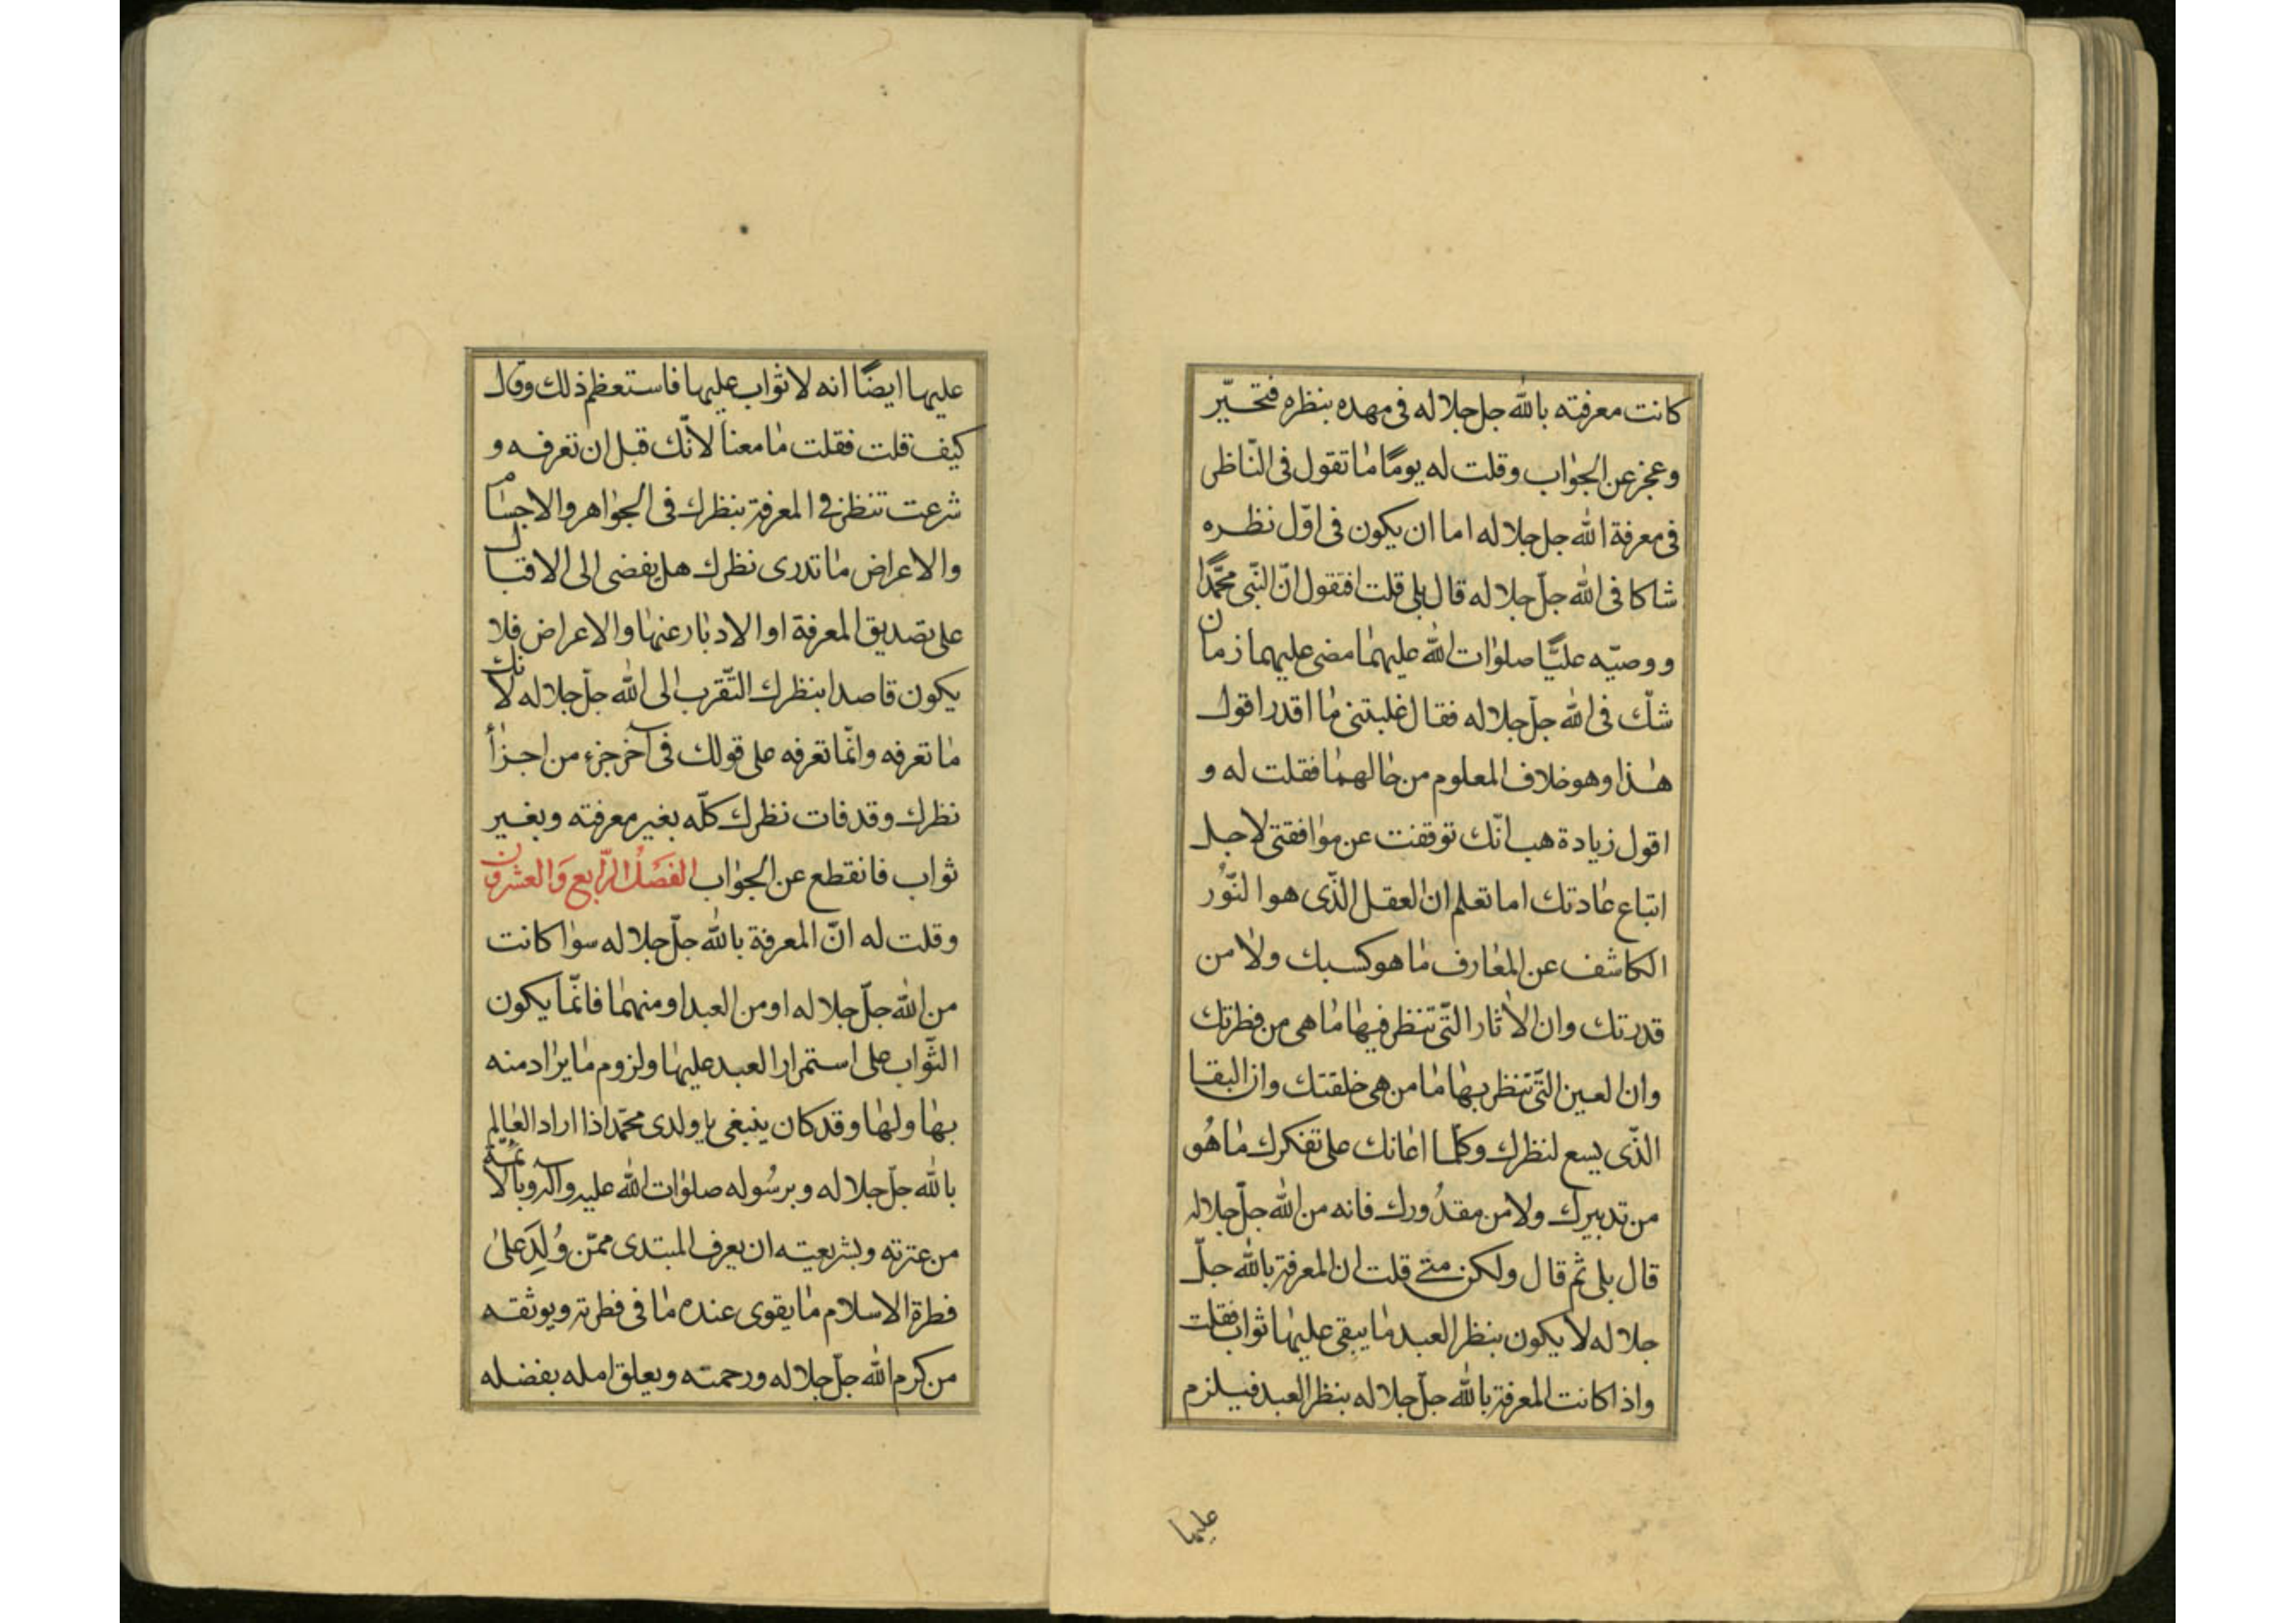 كانت معرفته بالله جل جلاله فى مهده بنظره فتحيّر
وعجز عن الجواب وقلت له يومًا ما تقول فى النّاظر
فى معرفة الله جل جلاله اما ان يكون فى اوّل نظره
شاكا فى الله جلّ جلاله قال بلى قلت افتقول انّ النّبى محمّدًا
ووصيّه عليًّا صلوات الله عليهما مضى عليهما زمان
شكّ فى الله جلّ جلاله فقال غلبتنى ما اقدر اقول
هذا وهو خلاف المعلوم من حالهما فقلت له و
اقول زيادة هب انّك توقفت عن موافقتى لاجل
اتباع عادتك اما تعلم ان العقل الذّى هو النّور
الكاشف عن المعارف ما هو كسبك ولا من
قدرتك وان الاثار التّى تنظر فيها ما هى من فطرتك
وان لعين التّى تنظر بها ما من هى خلقتك وان البقا
الذّى يسع لنظرك وكلما اعانك على تفكرك ما هُو
من تدبيرك ولا من مقدُورك فانه من الله جلّ جلاله
قال بلى ثم قال ولكن متى قلت ان المعرفة بالله جلّ
جلاله لا يكون بنظر العبد ما يبقى عليها ثواب فقلت
واذا كانت المعرفة بالله جلّ جلاله بنظر العبد فيلزم
عليها
عليها ايضًا انه لا ثواب عليها فاستعظم ذلك وقال
كيف قلت فقلت ما معنا لانّك قبل ان تعرفه و
شرعت تنظر فى المعرفة بنظرك فى الجواهر والاجسام
والاعراض ما تدرى نظرك هل يفضى الى الاقبال
على تصديق المعرفة او الادبار عنها والاعراض فلا
يكون قاصدا بنظرك التّقرب الى الله جلّ جلاله لانك
ما تعرفه وانّما تعرفه على قولك فى آخر جزء من اجزأ
نظرك وقد فات نظرك كلّه بغير معرفته وبغير
ثواب فانقطع عن الجواب الفصَلُ الرّابع وَالعشرون
وقلت له انّ المعرفة بالله جلّ جلاله سوا كانت
من الله جلّ جلاله او من العبد او منهما فانّما يكون
الثّواب على استمرار العبد عليها ولزوم ما يراد منه
بها ولها وقد كان ينبغى يا ولدى محمّد اذا اراد العالم
بالله جلّ جلاله وبرسُوله صلوات الله عليه وآله وبالائمّة
من عترته وبشريعته ان يعرف المبتدى ممّن وُلِدَ على
فطرة الاسلام ما يقوى عنده ما فى فطرته ويوثقه
من كرم الله جلّ جلاله ورحمته ويعلق امله بفضله